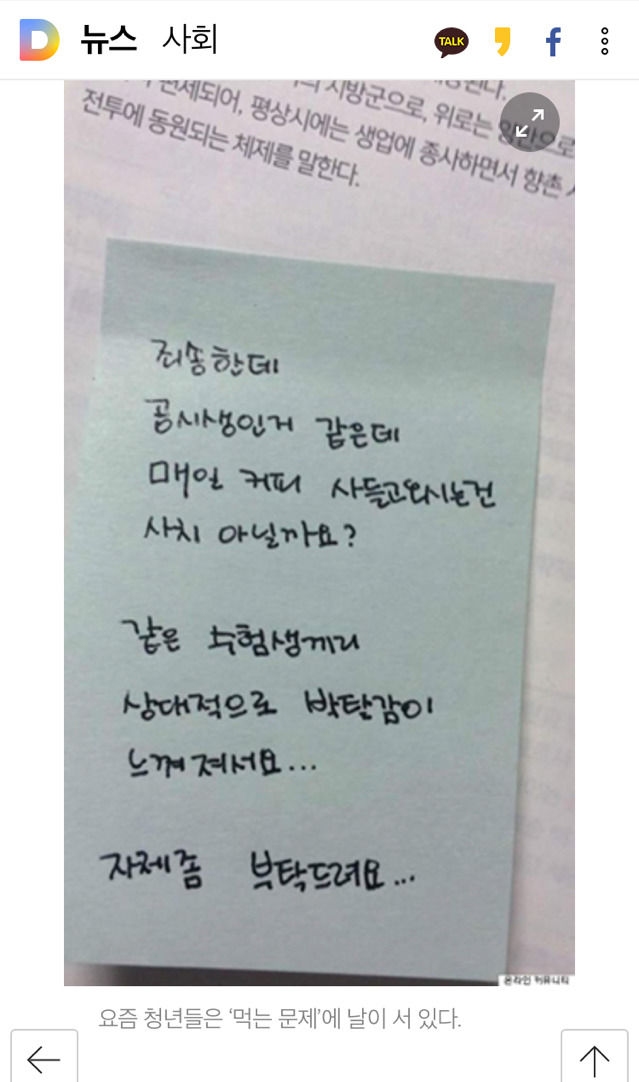 뉴스 사회
TALK
편제되어, 평상시에는 생업에 종사하면서 향촌
전투에 동원되는 체제를 말한다.
죄송한데
공시생인거 같은데
매일 커피 사들고오시는건
사치 아닐까요?
같은 수험생끼리
상대적으로 박탈감이
느껴져서요...
자제좀 부탁드려요...
온라인 커뮤니티
요즘 청년들은 ‘먹는 문제’에 날이 서 있다.